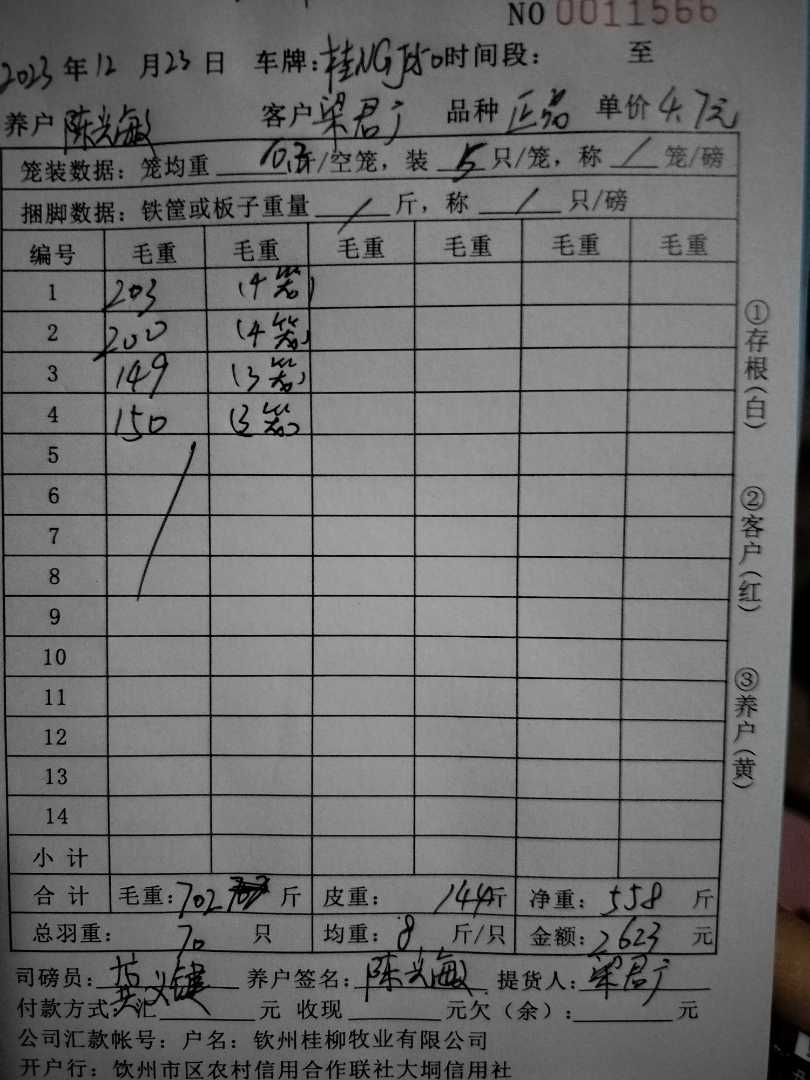 NO 0011566
2023 年 12 月 23 日 车牌: 桂NGJ 时间段: 至
养户 陈光敏 客户 梁君广 品种 正茗 单价 4.7元
笼装数据: 笼均重 10.3斤/空笼, 装 5 只/笼, 称 / 笼/磅
捆脚数据: 铁筐或板子重量 / 斤, 称 / 只/磅
编号 毛重 毛重 毛重 毛重 毛重 毛重
1 203 (4笼)
2 200 (4笼)
3 149 (3笼)
4 150 (3笼)
5
6
7
8
9
10
11
12
13
14
小 计
合 计 毛重: 702 斤 皮重: 144斤 净重: 558 斤
总羽重: 70 只 均重: 8 斤/只 金额: 2623 元
司磅员: 义键 养户签名: 陈光敏 提货人: 梁君广
付款方式: 汇 元 收现 元欠(余): 元
公司汇款帐号: 户名: 钦州桂柳牧业有限公司
开户行: 钦州市区农村信用合作联社大垌信用社
①存根(白)
②客户(红)
③养户(黄)